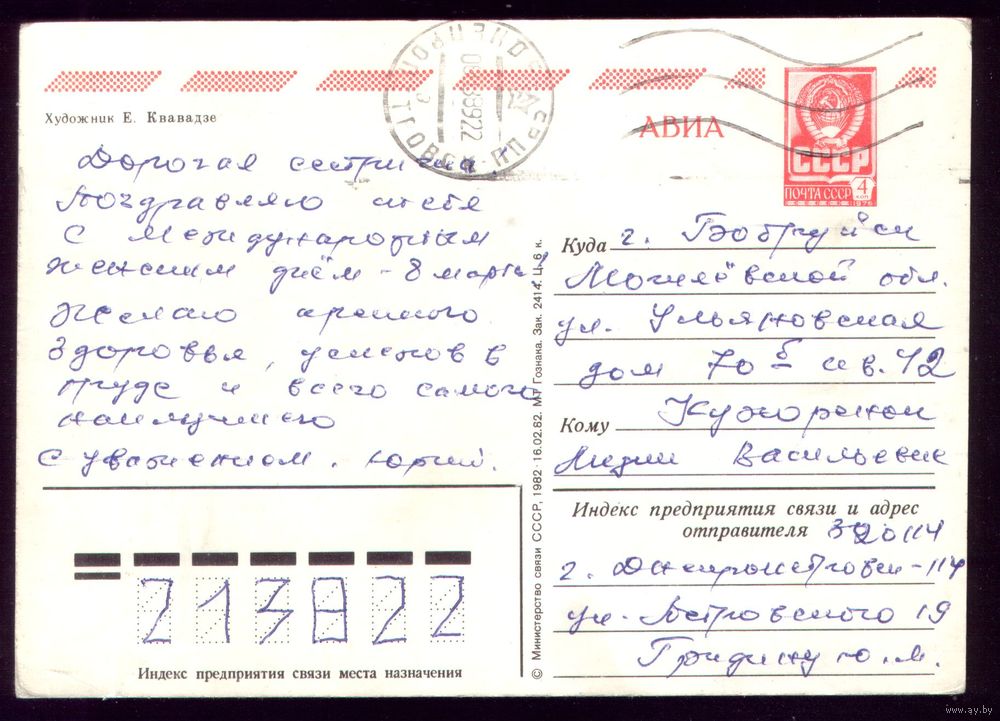 Художник Е. Квавадзе
АВИА
СССР
ПОЧТА СССР
4
КОП
1976
Дорогая сестричка!
Поздравляю тебя
с международным
женским днём - 8 марта!
Желаю крепкого
здоровья, успехов в
труде и всего самого
наилучшего
С уважением. Юрий.
Куда г. Бобруйск
Могилёвской обл.
ул. Ульяновская
дом 70 б кв. 42
Кому
Лидии Васильевне
Индекс предприятия связи и адрес
отправителя 320114
г. Днепропетровск-114
ул. Островского 19
Гридину Ю. М.
213822
Индекс предприятия связи места назначения
© Министерство связи СССР, 1982. 16.02.82. МТ Гознака. Зак. 2414. Ц. 6 к.
www.ay.by